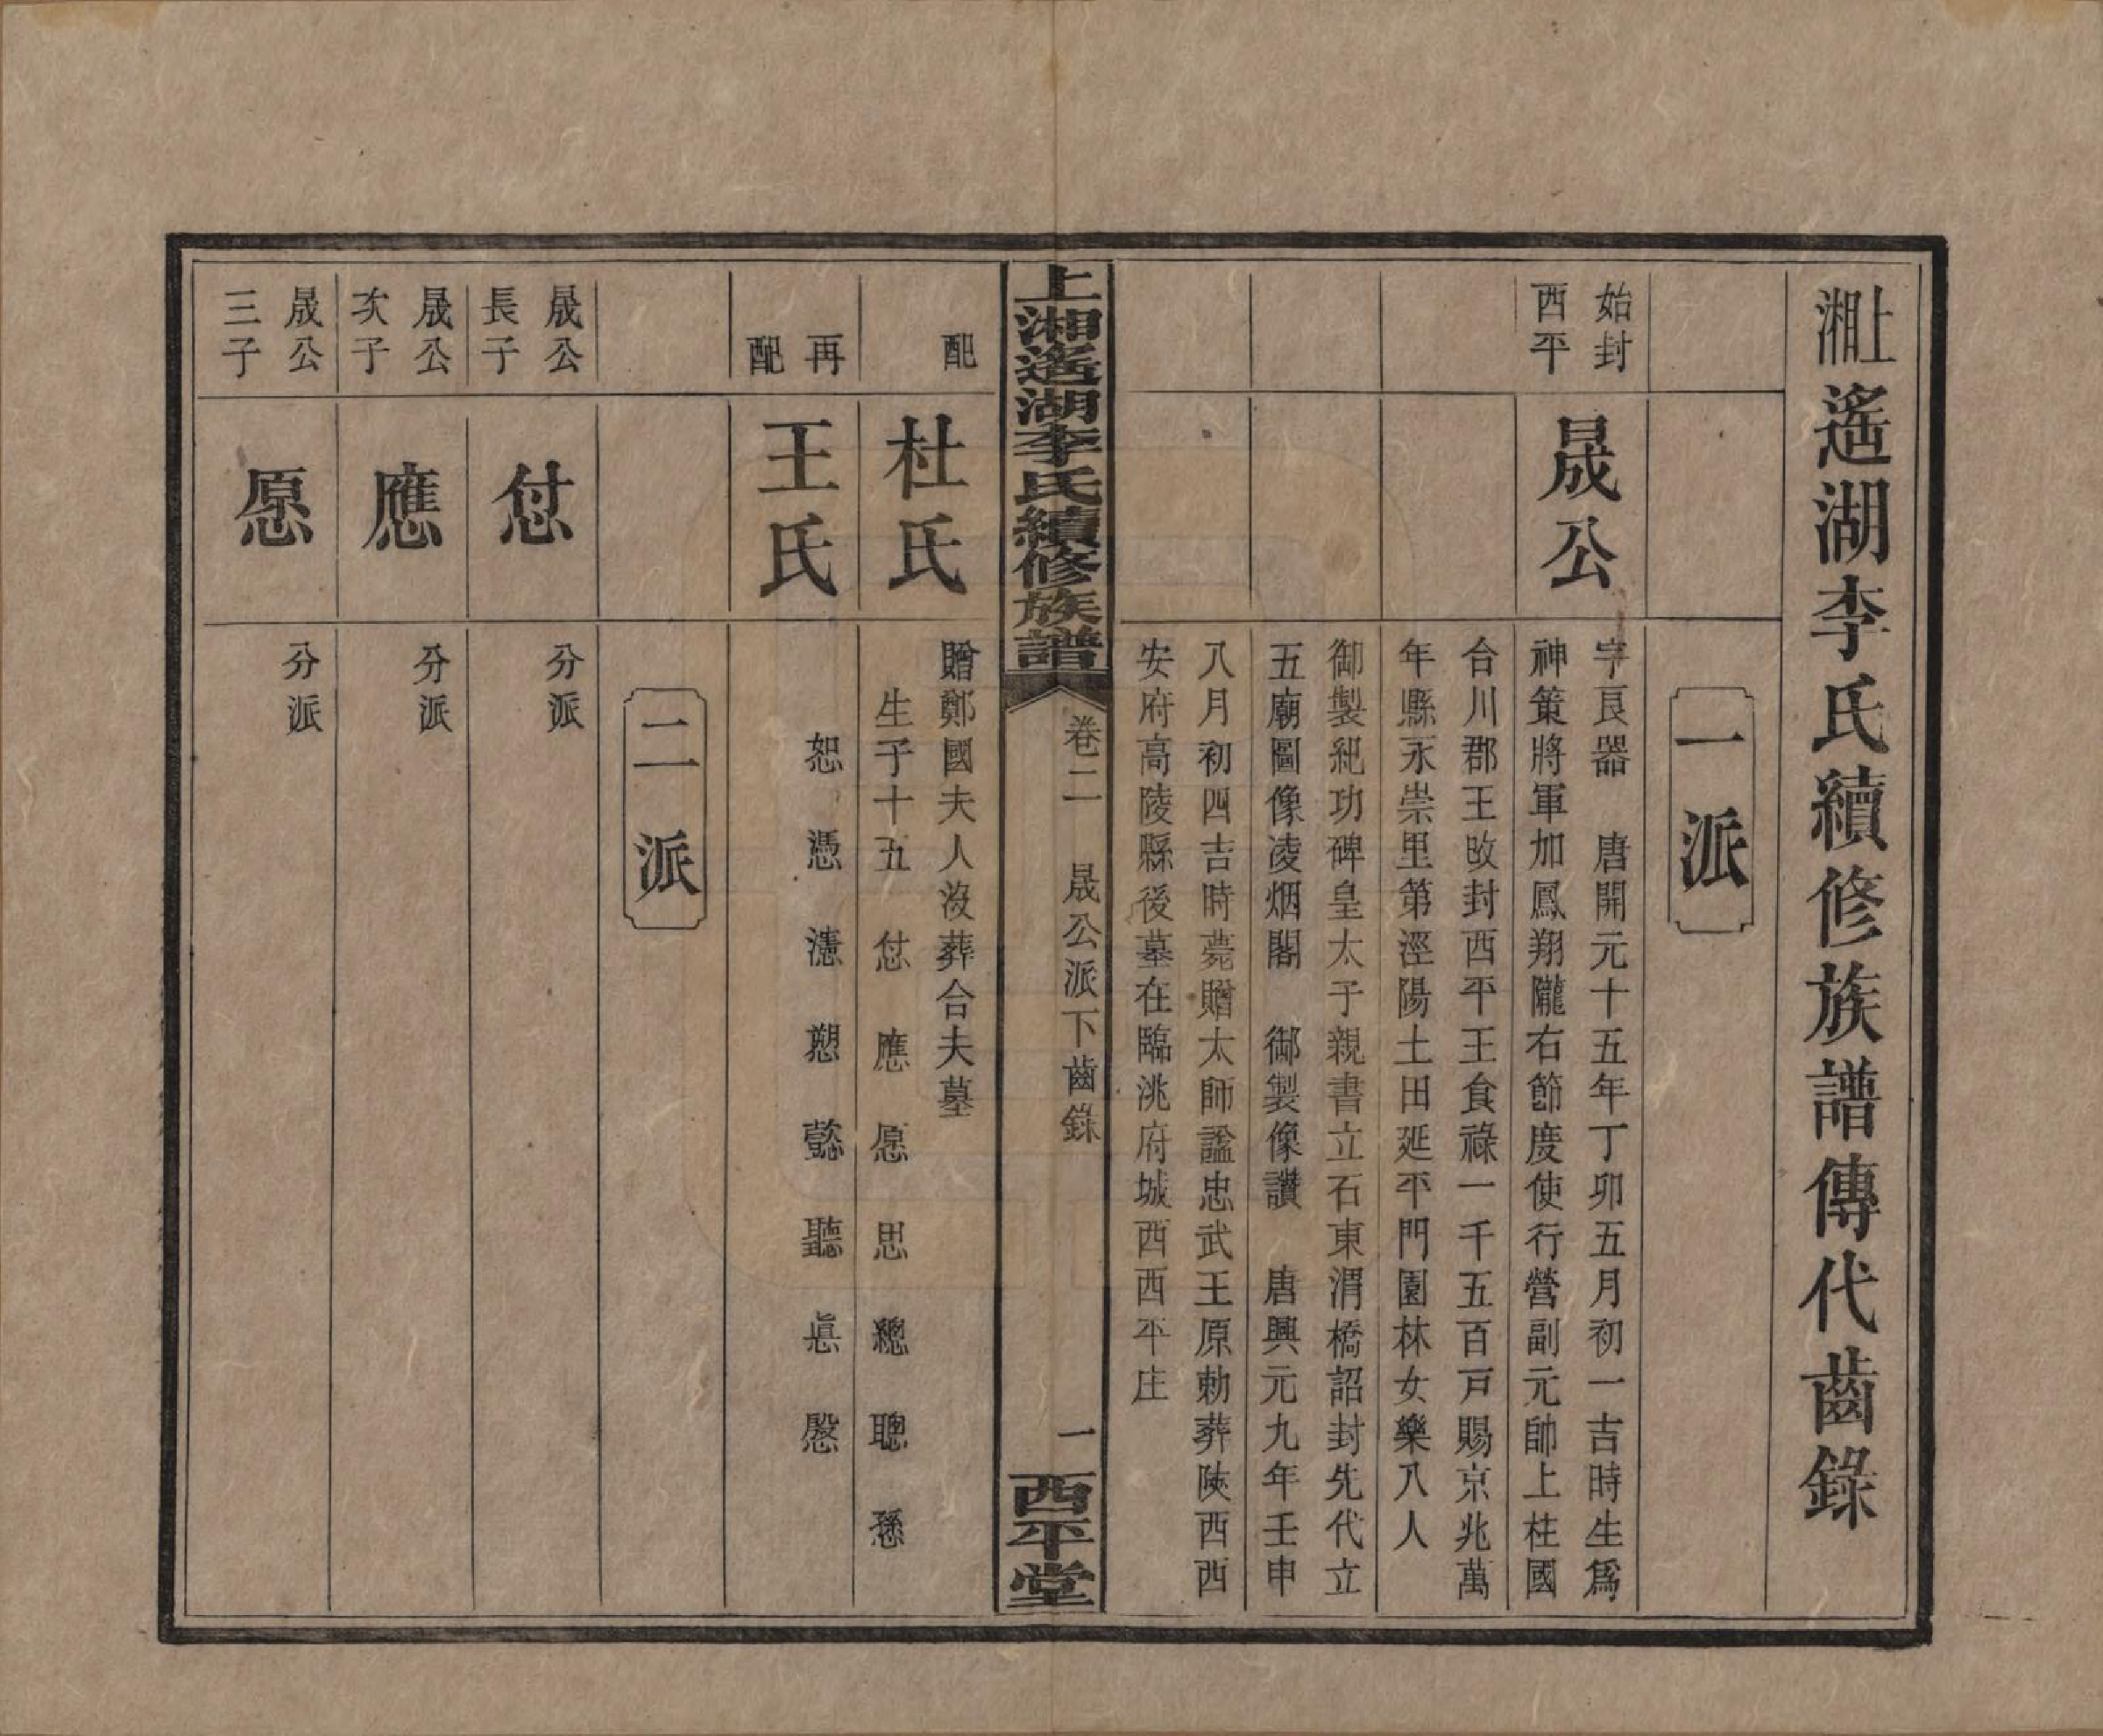 上湘遙湖李氏續修族譜傳代齒錄
一派
始封
西平
晟公
字艮器　唐開元十五年丁卯五月初一吉時生爲
神策將軍加鳳翔隴右節度使行營副元帥上柱國
合川郡王改封西平王食祿一千五百戸賜京兆萬
年縣永崇里第涇陽土田延平門園林女樂八人
御製紀功碑皇太子親書立石東渭橋詔封先代立
五廟圖像凌烟閣　御製像讚　唐興元九年壬申
八月初四吉時薨贈太師諡忠武王原勅葬陜西西
安府高陵縣後墓在臨洮府城西西平庄
上湘遙湖李氏續修族譜
卷二　晟公派下齒錄
一
西平堂
配
杜氏
贈鄭國夫人沒葬合夫墓
生子十五　侸　應　愿　思　總　聰　愻
再
配
王氏
恕　憑　憲　愬　懿　聽　惎　慇
二派
晟公
長子
侸
分派
晟公
次子
應
分派
晟公
三子
愿
分派